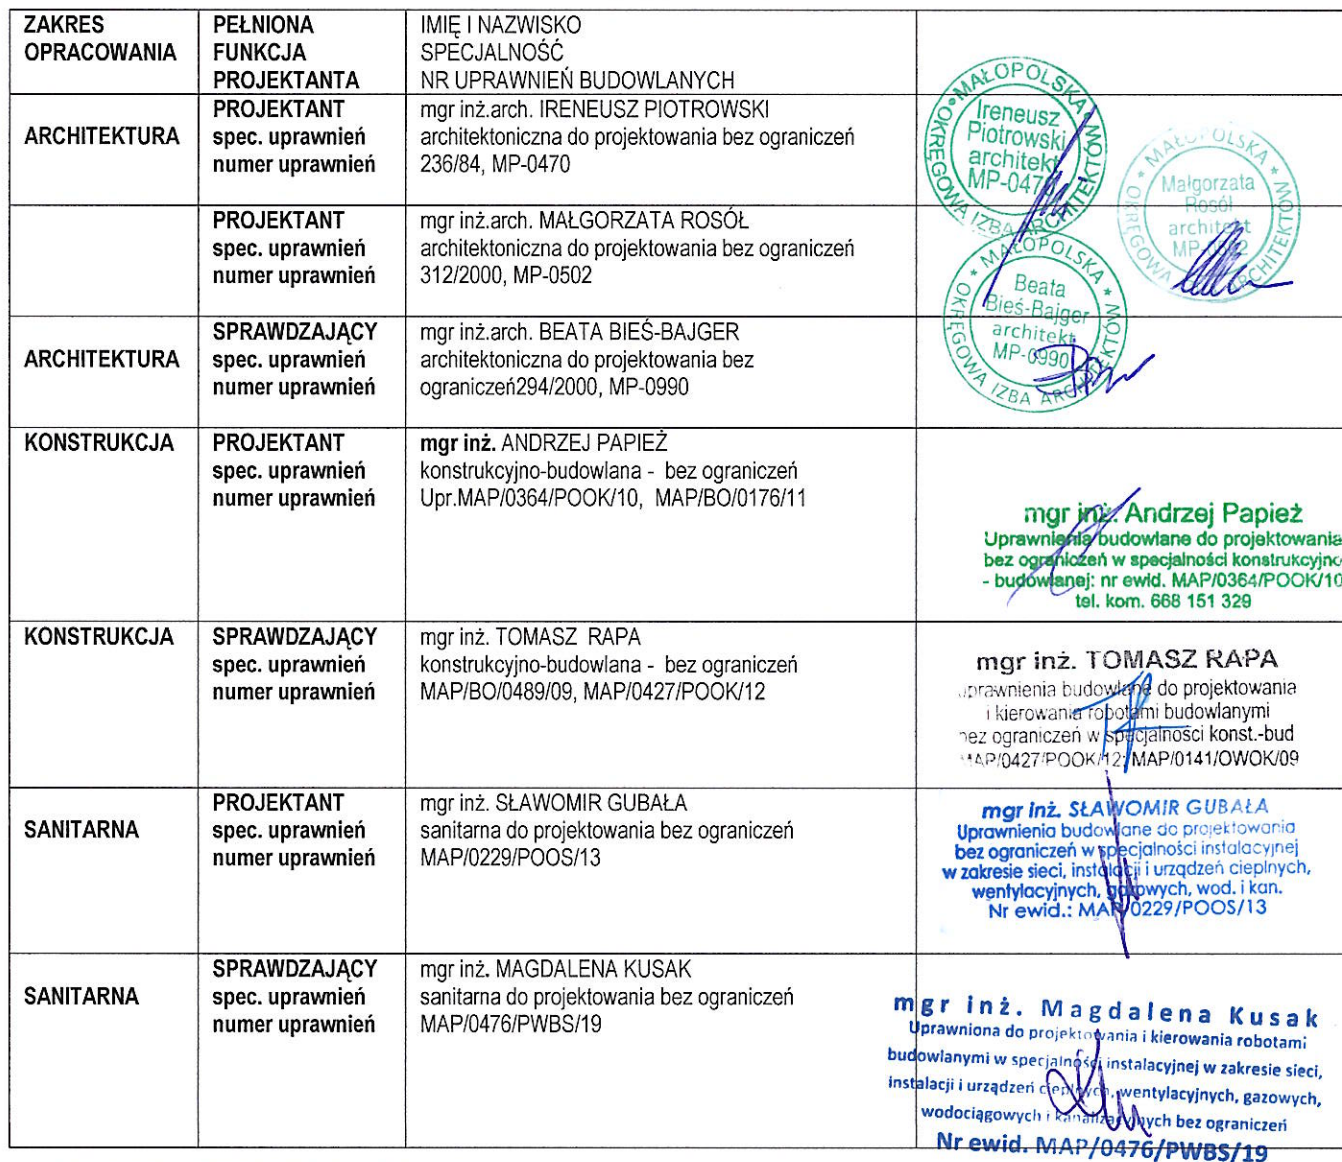 ZAKRES OPRACOWANIA
PEŁNIONA FUNKCJA PROJEKTANTA
IMIĘ I NAZWISKO
SPECJALNOŚĆ
NR UPRAWNIEŃ BUDOWLANYCH
ARCHITEKTURA
PROJEKTANT
spec. uprawnień
numer uprawnień
mgr inż.arch. IRENEUSZ PIOTROWSKI
architektoniczna do projektowania bez ograniczeń
236/84, MP-0470
MAŁOPOLSKA OKRĘGOWA IZBA ARCHITEKTÓW
Ireneusz
Piotrowski
architekt
MP-0470
PROJEKTANT
spec. uprawnień
numer uprawnień
mgr inż.arch. MAŁGORZATA ROSÓŁ
architektoniczna do projektowania bez ograniczeń
312/2000, MP-0502
MAŁOPOLSKA * OKRĘGOWA IZBA ARCHITEKTÓW *
Małgorzata
Rosół
architekt
MP-0502
ARCHITEKTURA
SPRAWDZAJĄCY
spec. uprawnień
numer uprawnień
mgr inż.arch. BEATA BIEŚ-BAJGER
architektoniczna do projektowania bez
ograniczeń294/2000, MP-0990
MAŁOPOLSKA * OKRĘGOWA IZBA ARCHITEKTÓW *
Beata
Bieś-Bajger
architekt
MP-0990
KONSTRUKCJA
PROJEKTANT
spec. uprawnień
numer uprawnień
mgr inż. ANDRZEJ PAPIEŻ
konstrukcyjno-budowlana - bez ograniczeń
Upr.MAP/0364/POOK/10, MAP/BO/0176/11
mgr inż. Andrzej Papież
Uprawnienia budowlane do projektowania
bez ograniczeń w specjalności konstrukcyjno
- budowlanej: nr ewid. MAP/0364/POOK/10
tel. kom. 668 151 329
KONSTRUKCJA
SPRAWDZAJĄCY
spec. uprawnień
numer uprawnień
mgr inż. TOMASZ RAPA
konstrukcyjno-budowlana - bez ograniczeń
MAP/BO/0489/09, MAP/0427/POOK/12
mgr inż. TOMASZ RAPA
uprawnienia budowlane do projektowania
i kierowania robotami budowlanymi
bez ograniczeń w specjalności konst.-bud
MAP/0427/POOK/12; MAP/0141/OWOK/09
SANITARNA
PROJEKTANT
spec. uprawnień
numer uprawnień
mgr inż. SŁAWOMIR GUBAŁA
sanitarna do projektowania bez ograniczeń
MAP/0229/POOS/13
mgr inż. SŁAWOMIR GUBAŁA
Uprawnienia budowlane do projektowania
bez ograniczeń w specjalności instalacyjnej
w zakresie sieci, instalacji i urządzeń cieplnych,
wentylacyjnych, gazowych, wod. i kan.
Nr ewid.: MAP/0229/POOS/13
SANITARNA
SPRAWDZAJĄCY
spec. uprawnień
numer uprawnień
mgr inż. MAGDALENA KUSAK
sanitarna do projektowania bez ograniczeń
MAP/0476/PWBS/19
mgr inż. Magdalena Kusak
Uprawniona do projektowania i kierowania robotami
budowlanymi w specjalności instalacyjnej w zakresie sieci,
instalacji i urządzeń cieplnych, wentylacyjnych, gazowych,
wodociągowych i kanalizacyjnych bez ograniczeń
Nr ewid. MAP/0476/PWBS/19